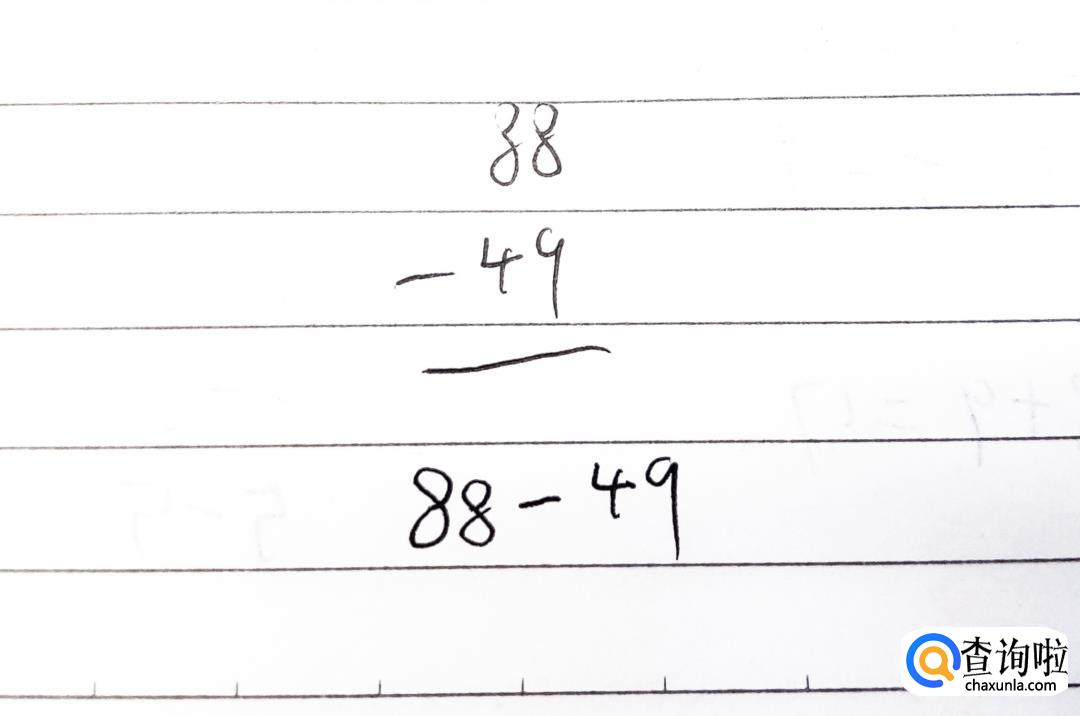 88
- 49
88 - 49
查询啦
chaxunla.com